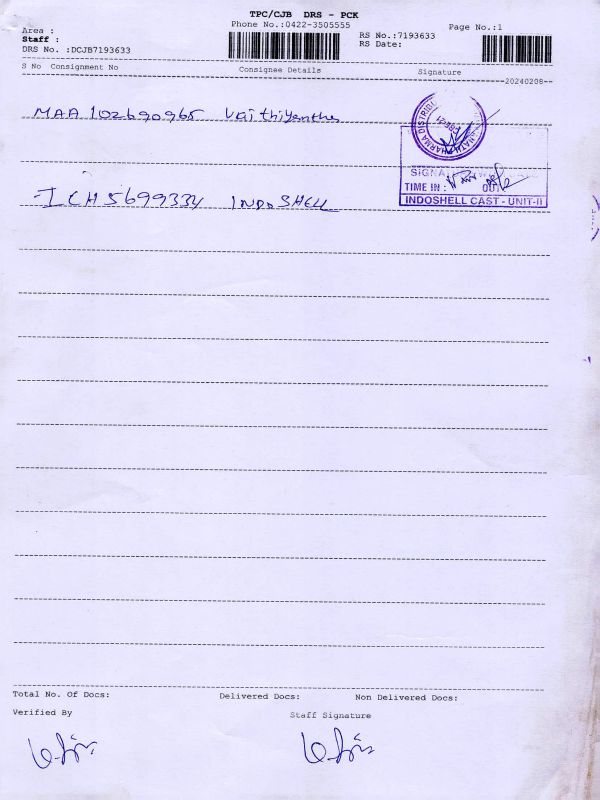 TPC/CJB DRS - PCK
Phone No.:0422-3505555
Page No.:1
Area :
Staff :
DRS No. :DCJB7193633
RS No.:7193633
RS Date:
S No Consignment No Consignee Details Signature
20240208
MAA 102690965 Vaithiyantha
ICH5699334 INDOSHELL
PHARMA DISTRIB
CBE-21
TIME IN : OUT
INDOSHELL CAST - UNIT-II
Total No. Of Docs: Delivered Docs: Non Delivered Docs:
Verified By Staff Signature